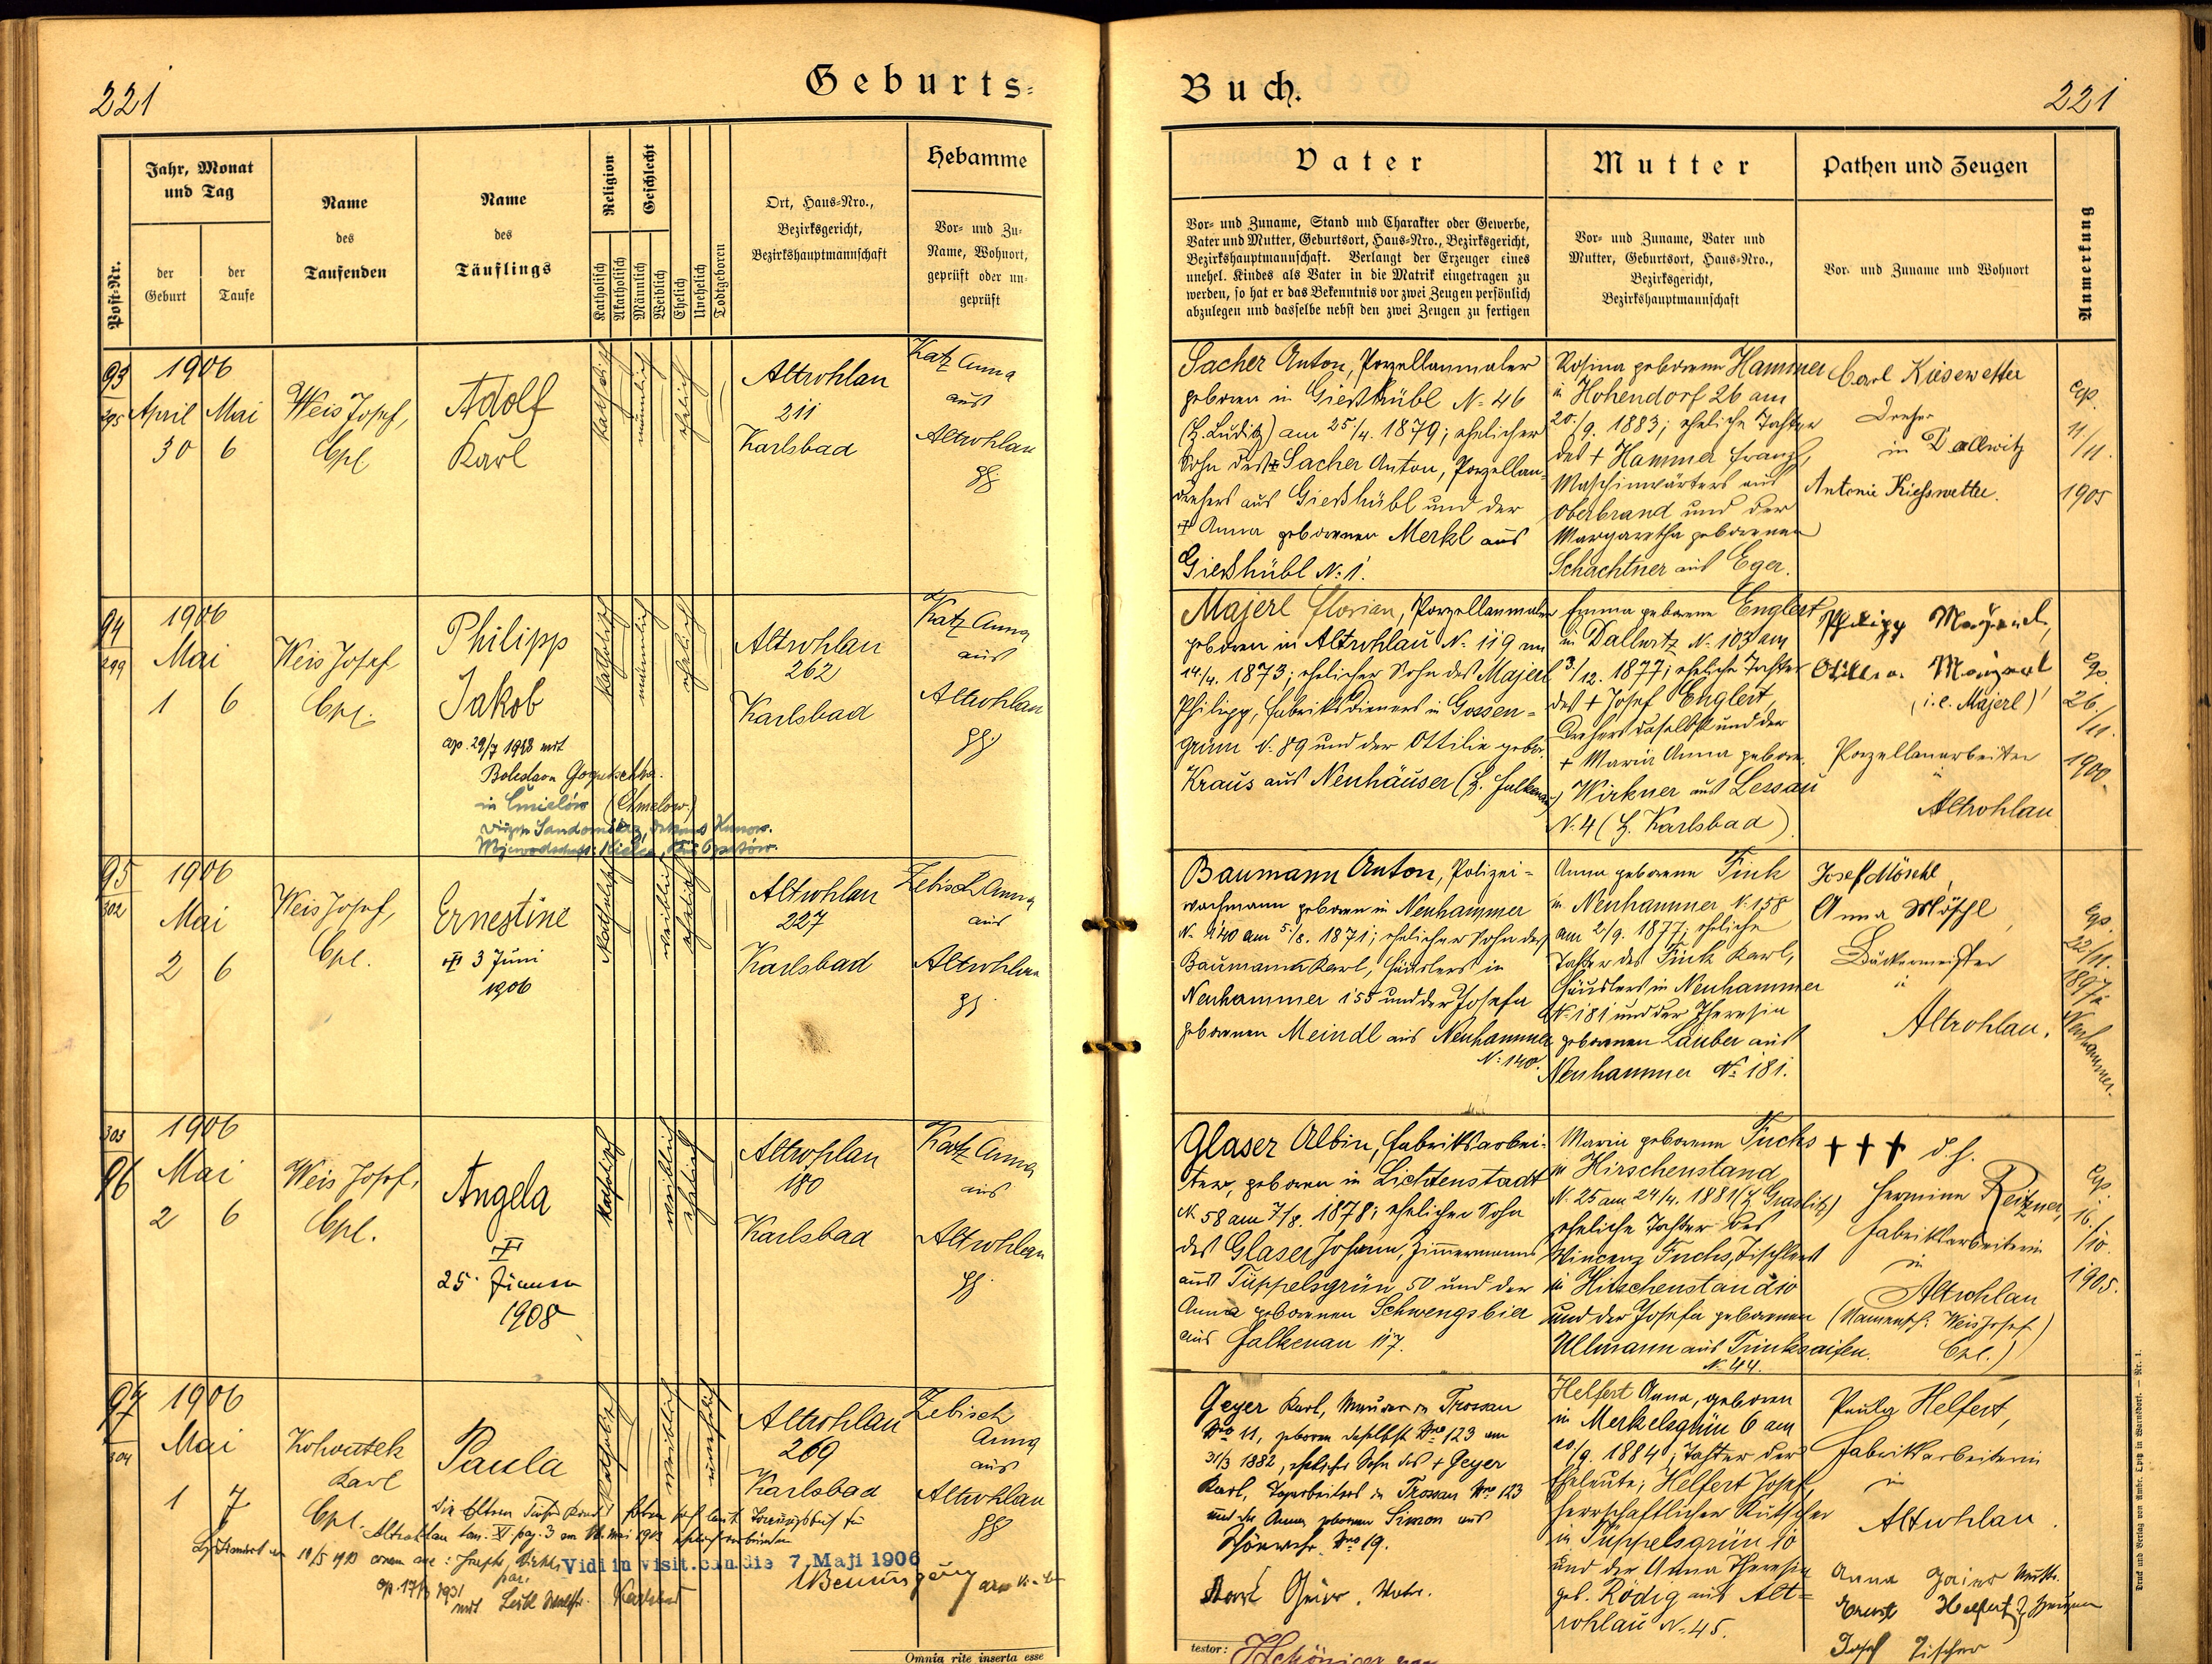 221
Geburts-
Buch.
221
Post-Nr.
Jahr, Monat
und Tag
der
Geburt
der
Taufe
Name
des
Taufenden
Name
des
Täuflings
Religion
Katholisch
Akatholisch
Geschlecht
Männlich
Weiblich
Ehelich
Unehelich
Todtgeboren
Ort, Haus-Nro.,
Bezirksgericht,
Bezirkshauptmannschaft
Hebamme
Vor- und Zu-
Name, Wohnort,
geprüft oder un-
geprüft
Vater
Vor- und Zuname, Stand und Charakter oder Gewerbe,
Vater und Mutter, Geburtsort, Haus-Nro., Bezirksgericht,
Bezirkshauptmannschaft. Verlangt der Erzeuger eines
unehel. Kindes als Vater in die Matrik eingetragen zu
werden, so hat er das Bekenntnis vor zwei Zeugen persönlich
abzulegen und dasselbe nebst den zwei Zeugen zu fertigen
Mutter
Vor- und Zuname, Vater und
Mutter, Geburtsort, Haus-Nro.,
Bezirksgericht,
Bezirkshauptmannschaft
Pathen und Zeugen
Vor- und Zuname und Wohnort
Anmerkung
93
295
1906
April Mai
30 6
Weis Josef,
Cpl
Adolf
Karl
katholisch
männlich
ehelich
Altrohlau
211
Karlsbad
Katz Anna
aus
Altrohlau
Sacher Anton, Porzellanmaler
geboren in Gießhübl N. 46
(B. Luditz) am 25/4. 1879; ehelicher
Sohn des + Sacher Anton, Porzellan-
drehers aus Gießhübl und der
+ Anna geborenen Merkl aus
Gießhübl N. 1.
Rosina geborene Hammer
in Hohendorf 26 am
20./9. 1883; eheliche Tochter
des + Hammer Franz,
Maschinwärters aus
Oberbrand und der
Margaretha geborenen
Schachtner aus Eger.
Carl Kiesewetter
Dreher
in Dallwitz
Antonie Kiesswetter.
cop.
11/11.
1905
94
299
1906
Mai
1 6
Weis Josef
Cpl.
Philipp
Jakob
cop. 29/7 1948 mit
in Ćmielów (Chmelow.)
katholisch
männlich
ehelich
Altrohlau
262
Karlsbad
Katz Anna
aus
Altrohlau
Majerl Florian, Porzellanmaler
geboren in Altrohlau N. 119 am
14/4. 1873; ehelicher Sohn des Majerl
Philipp, Fabriksdieners in Gossen-
grün N. 89 und der Ottilie gebor.
Kraus aus Neuhäuser (B. Falkenau)
Emma geborene Englert
in Dallwitz N. 103 am
3/12. 1877; eheliche Tochter
des + Josef Englert,
Drehers daselbst und der
+ Maria Anna geboren.
Wirkner aus Lessau
N. 4 (B. Karlsbad)
(i.e. Majerl)
Porzellanarbeiter
Altrohlau
cop.
26./11.
1900.
95
302
1906
Mai
2 6
Weis Josef,
Cpl.
Ernestine
+ 3 Juni
1906
katholisch
weiblich
ehelich
Altrohlau
227
Karlsbad
Zebisch Anna
aus
Altrohlau
Baumann Anton, Polizei-
wachmann geboren in Neuhammer
N. 140 am 5./8. 1871; ehelicher Sohn des
Baumann Karl, Häuslers in
Neuhammer 155 und der Josefa
geborenen Meindl aus Neuhammer
N. 140.
Anna geborene Fink
in Neuhammer N. 158
am 2/9. 1877; eheliche
Tochter des Fink Karl,
Häuslers in Neuhammer
N. 181 und der Theresia
geborenen Lauber aus
Neuhammer N. 181.
Josef Möschl,
Anna Möschl,
Bäckermeister
Altrohlau.
cop.
22/11.
1897
Neuhammer.
303
96
1906
Mai
2 6
Weis Josef,
Cpl.
Angela
+
25. Jänner
1908
katholisch
weiblich
ehelich
Altrohlau
180
Karlsbad
Katz Anna
aus
Altrohlau
Glaser Albin, Fabriksarbei-
ter, geboren in Lichtenstadt
N. 58 am 7/8. 1878; ehelicher Sohn
des Glaser Johann, Zimmermanns
aus Tüppelsgrün 50 und der
Anna geborenen Schwengsbier
aus Falkenau 117.
Maria geborene Fuchs
in Hirschenstand
N. 25 am 24/4. 1881 (B. Graslitz)
eheliche Tochter des
Vincenz Fuchs, Tischlers
in Hirschenstand 10
und der Josefa geborenen
Ullmann aus Trinksaifen.
N. 44.
+++ d.h.
Hermine Reitzner,
Fabriksarbeiterin
in
Altrohlau
(Namensf. Weis Josef
Cpl.)
cop.
16./10.
1905.
97
304
1906
Mai
1 7
Kohoutek
Karl
Cpl.
Paula
katholisch
weiblich
unehelich
Altrohlau
269
Karlsbad
Zebisch
Anna
aus
Altrohlau
Vidi in visit. can. die 7. Maji 1906
Geyer Karl, Maurer in Trossau
Nro 11, geboren daselbst Nro 123 am
31/3 1882, ehelicher Sohn des + Geyer
Karl, Tagarbeiters in Trossau Nro 123
und der Anna geborenen Simon aus
Schönwehr Nro 19.
Helfert Anna, geboren
in Merkelsgrün 6 am
20/9. 1884; Tochter der
Eheleute: Helfert Josef,
herrschaftlicher Kutscher
in Tüppelsgrün 10
und der Anna Theresia
geb. Rödig aus Alt-
rohlau N. 45.
Paula Helfert,
Fabriksarbeiterin
in
Altrohlau.
Josef Tischer
Omnia rite inserta esse
testor:
Druck und Verlag von Ambr. Opitz in Warnsdorf. — Nr. 1.